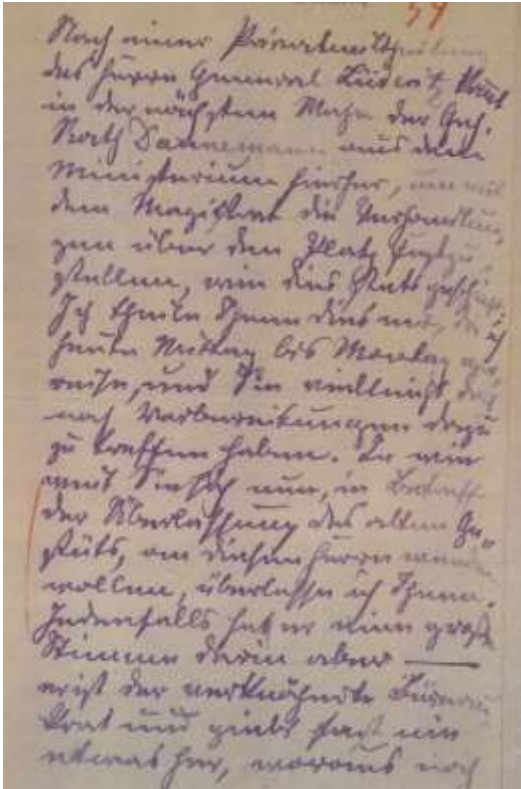 54
Nach einer Privatmittheilung
des Herrn General Lüderitz kommt
in der nächsten Woche der Geh.
Rath Dannemann aus dem
Ministerium hierher, um mit
dem Magistrat die Verhandlun
gen über den Platz festzu
stellen, wie dies stets geschieht.
Ich theile Ihnen dies mit, da ich
heute Mittag bis Montag ver
reise, und Sie vielleicht doch
noch Vorbereitungen dazu
zu treffen haben. In wie
weit Sie sich nun, in Betreff
der Überlassung des alten Ge„
stüts, an diesen Herrn wenden
wollen, überlasse ich Ihnen.
Jedenfalls hat er eine große
Stimme darin aber —
er ist der verknöcherte Bureau
krat und giebt fast nie
etwas her, woraus noch